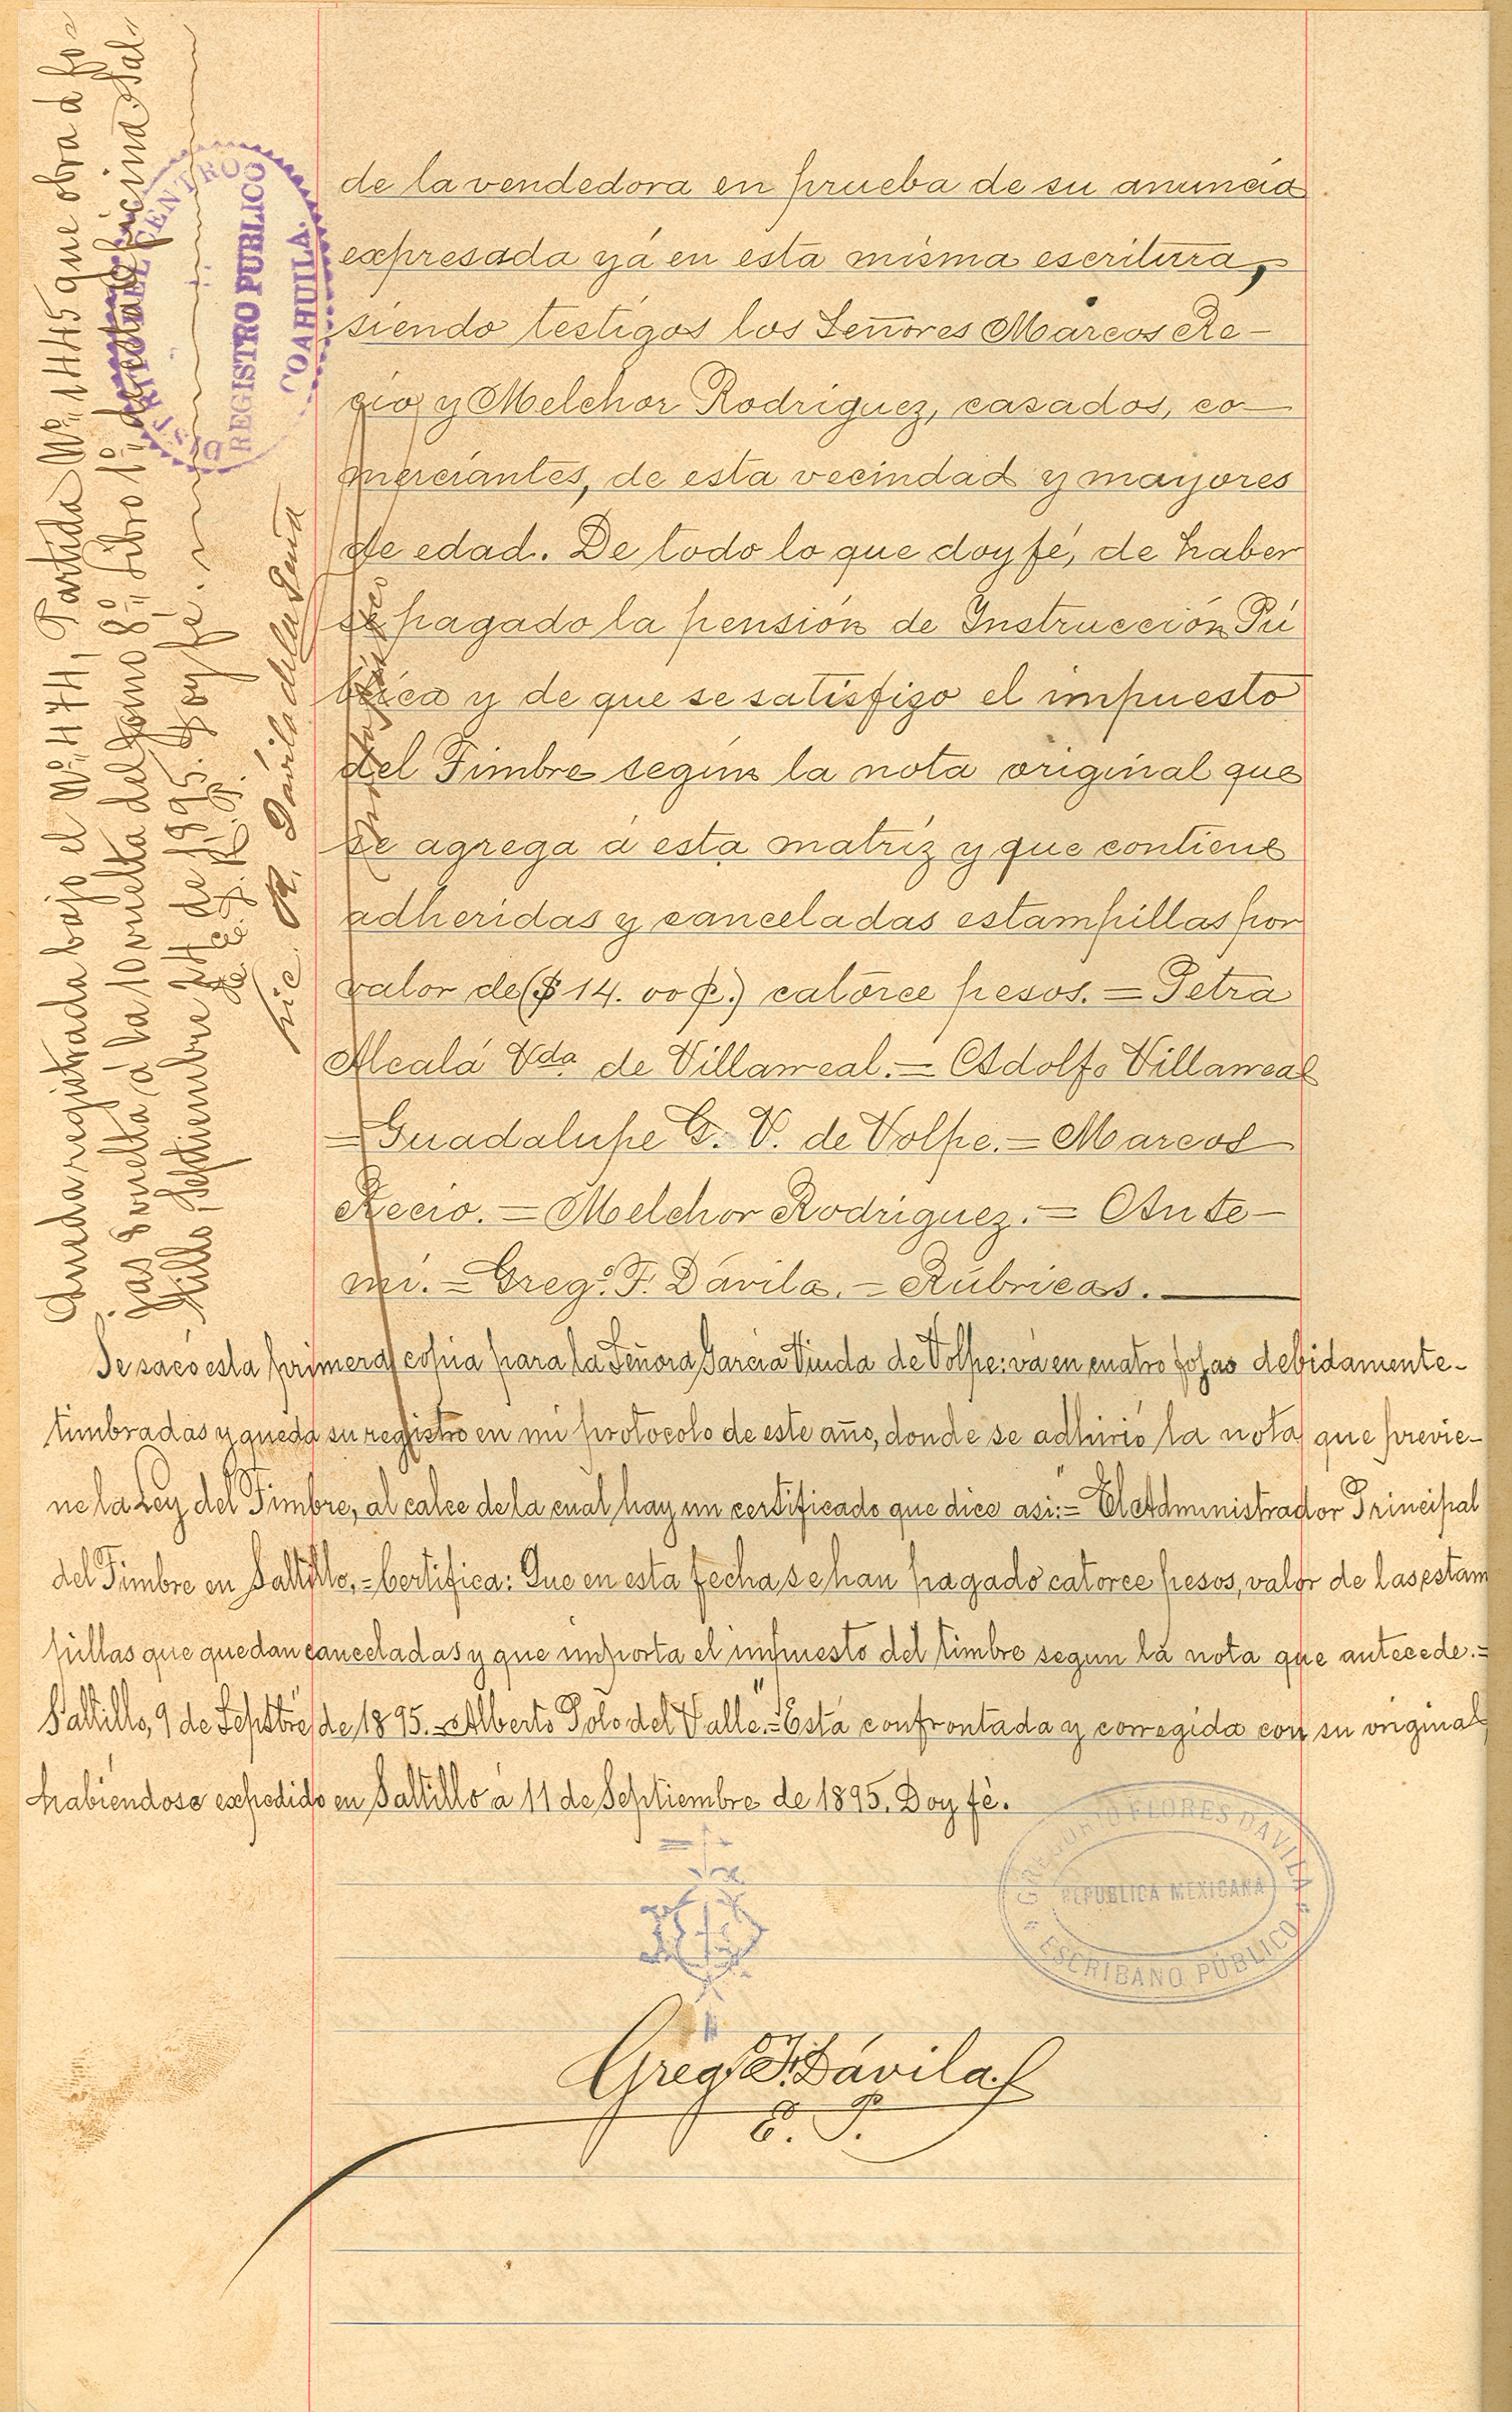 de la vendedora en prueba de su anuncia
expresada yá en esta misma escritura,
siendo testigos los Señores Marcos Re-
cio y Melchor Rodriguez, casados, co-
merciantes, de esta vecindad y mayores
de edad. De todo lo que doy fé, de haber
se pagado la pensión de Instrucción Pú
blica y de que se satisfizo el impuesto
del Timbre según la nota original que
se agrega á esta matríz y que contiene
adheridas y canceladas estampillas por
valor de ($14.00 ¢.) catorce pesos. = Petra
Alcalá Vda. de Villarreal. = Adolfo Villarreal
= Guadalupe G. V. de Volpe. = Marcos
Recio. = Melchor Rodriguez. = Ante-
mí. = Grego. F. Dávila. = Rúbricas.
Se sacó esta primera copia para la Señora García Viuda de Volpe: vá en cuatro fojas debidamente-
timbradas y queda su registro en mi protocolo de este año, donde se adhirió la nota que previe-
ne la Ley del Timbre, al calce de la cual hay un certificado que dice asi: = "El Administrador Principal
del Timbre en Saltillo, = Certifica: Que en esta fecha se han pagado catorce pesos, valor de las estam
pillas que quedan canceladas y que importa el impuesto del timbre segun la nota que antecede. =
Saltillo, 9 de Sepstre de 1895. = Alberto Polo del Valle." = Está confrontada y corregida con su original,
habiéndose expedido en Saltillo á 11 de Septiembre de 1895. Doy fè.
GREGORIO FLORES DAVILA
REPUBLICA MEXICANA
ESCRIBANO PÚBLICO
Grego. F. Dávila.
E. P.
Queda registrada bajo el No. 474, Partida No. 1445 que obra á fo-
jas 8 vuelta á la 10 vuelta del Tomo 8o. Libro 1o. de esta oficina. Sal-
tillo, Septiembre 24 de 1895. Doy fé.
Lic. R. Dávila de la Peña
DISTRITO DEL CENTRO
REGISTRO PUBLICO
COAHUILA.